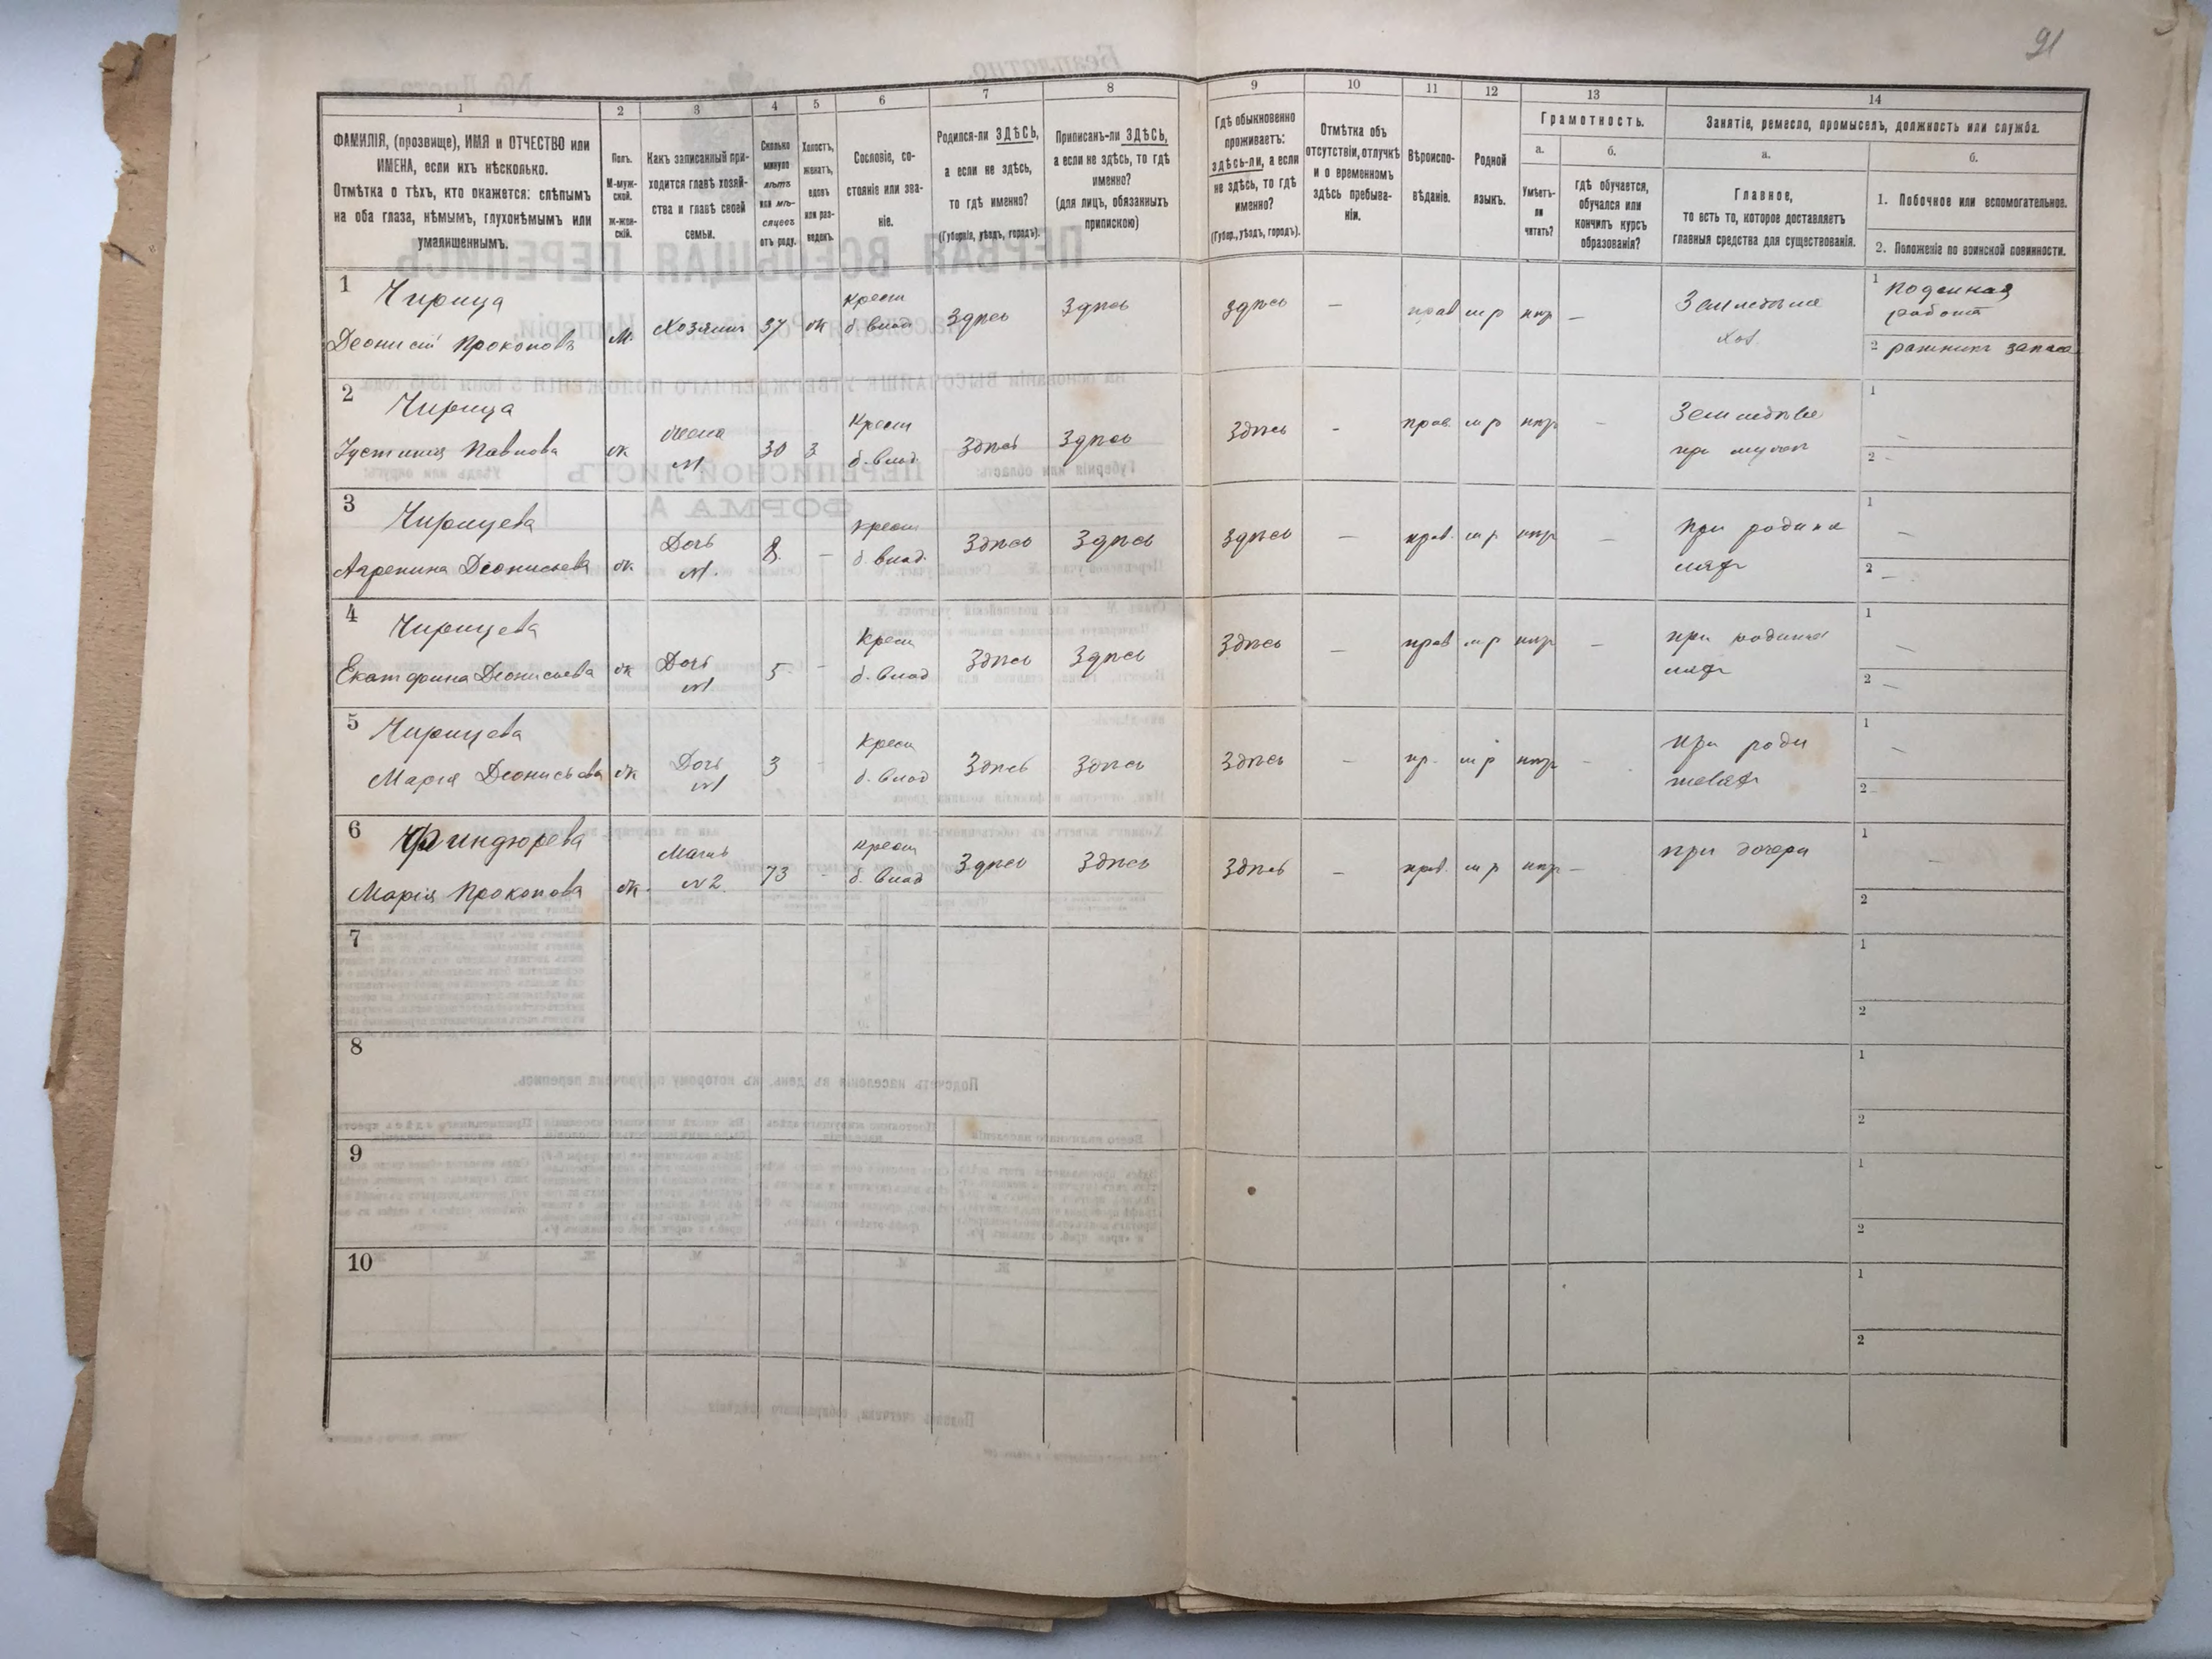 91
1 2 3 4 5 6 7 8 9 10 11 12 13 14
ФАМИЛІЯ, (прозвище), ИМЯ и ОТЧЕСТВО или
ИМЕНА, если ихъ нѣсколько.
Отмѣтка о тѣхъ, кто окажется: слѣпымъ
на оба глаза, нѣмымъ, глухонѣмымъ или
умалишеннымъ.
Полъ.
М-муж-
ской.
ж-жен-
скій.
Какъ записанный при-
ходится главѣ хозяй-
ства и главѣ своей
семьи.
Сколько
минуло
лѣтъ
или мѣ-
сяцевъ
отъ роду.
Холостъ,
женатъ,
вдовъ
или раз-
веденъ.
Сословіе, со-
стояніе или зва-
ніе.
Родился-ли ЗДѢСЬ,
а если не здѣсь,
то гдѣ именно?
(Губернія, уѣздъ, городъ).
Приписанъ-ли ЗДѢСЬ,
а если не здѣсь, то гдѣ
именно?
(для лицъ, обязанныхъ
припискою)
Гдѣ обыкновенно
проживаетъ:
здѣсь-ли, а если
не здѣсь, то гдѣ
именно?
(Губер., уѣздъ, городъ).
Отмѣтка объ
отсутствіи, отлучкѣ
и о временномъ
здѣсь пребыва-
ніи.
Вѣроиспо-
вѣданіе.
Родной
языкъ.
Грамотность.
а.
Умѣетъ-
ли
читать?
б.
гдѣ обучается,
обучался или
кончилъ курсъ
образованія?
Занятіе, ремесло, промыселъ, должность или служба.
а.
Главное,
то есть то, которое доставляетъ
главныя средства для существованія.
б.
1. Побочное или вспомогательное.
2. Положеніе по воинской повинности.
1 Чирица
Деонисій Прокоповъ М. Хозяинъ 37 ж
крест
б. влад Здѣсь Здѣсь Здѣсь — прав м р нгр —
Земледѣлие
Хоз.
1 поденная
работа
2 ратникъ запаса
2 Чирица
Іустинія Павлова ж
жена
№1 30 З
крест
б. влад Здѣсь Здѣсь Здѣсь - прав м р нгр -
Земледѣлие
при мужѣ
1 —
2 -
3 Чирицева
Агрепина Деонисьева ж
Дочь
№1. 8 —
крест
б. влад. Здѣсь Здѣсь Здѣсь — прав. м р нгр —
при родите
ляхъ
1 —
2 —
4 Чирицева
Екатерина Деонисьева ж
Дочь
№1 5 -
крест
б. влад Здѣсь Здѣсь Здѣсь — прав м р нгр —
при родите
ляхъ
1 —
2 —
5 Чирицева
Марія Деонисьева ж
Дочь
№1 3 -
крест
б. влад Здѣсь Здѣсь Здѣсь — пр. м р нгр -
при роди
теляхъ
1 —
2 -
6
Марія Прокопова ж.
Мать
№2. 73 -
крест
б. влад Здѣсь Здѣсь Здѣсь — прав. м р нгр —
при дочери
1 —
2
7 1
2
8 1
2
9 1
2
10 1
2